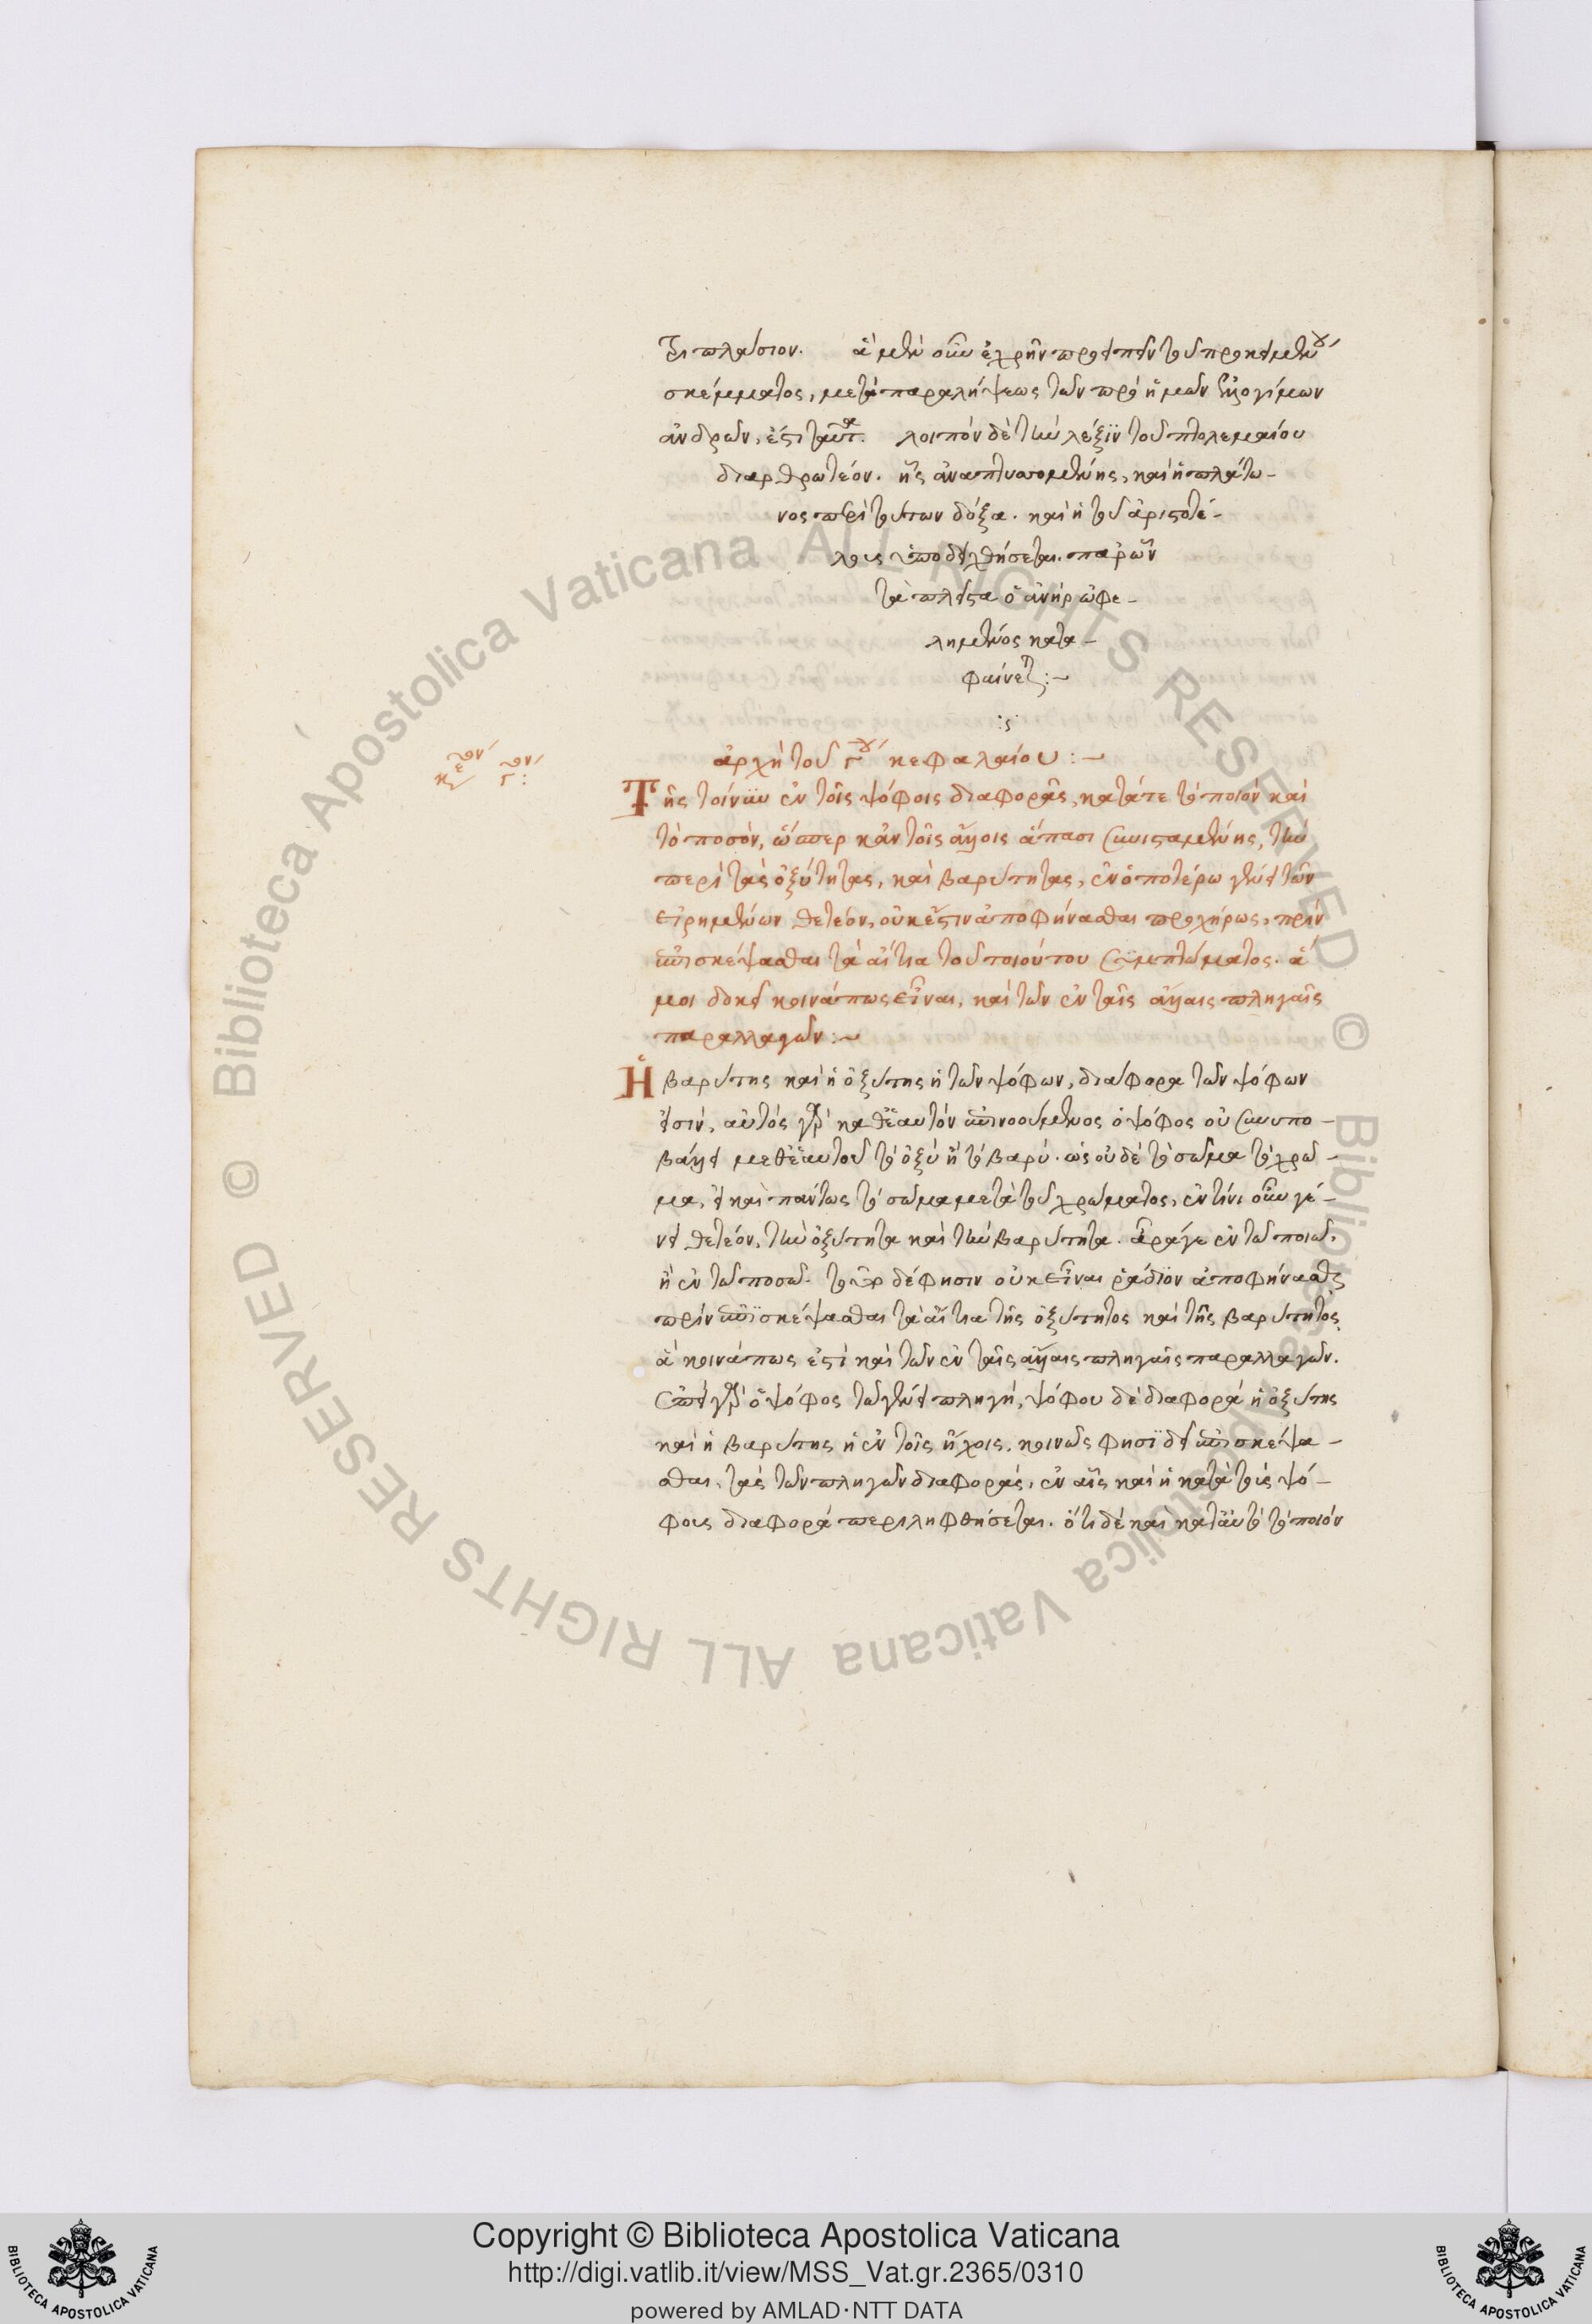 τριπλάσιον. ἃ μὲν οὖν ἐχρῆν προειπεῖν τοῦ προκειμένου
σκέμματος, μετὰ παραλήψεως τῶν πρὸ ἡμῶν ἐλλογίμων
ἀνδρῶν, ἐστὶ ταῦτα. λοιπὸν δὲ τὴν λέξϊν τοῦ πτολεμαίου
διαρθρωτέον. ἧς ἀναπτυσσομένης, καὶ ἡ πλάτω-
νος περὶ τούτων δόξα. καὶ ἡ τοῦ ἀριστοτέ-
λους ὑποδειχθήσεται. παρ' ὧν
τὰ πλεῖστα ὁ ἀνὴρ ὠφε-
λημένος κατα-
φαίνεται:~
:ς
κείμενον γ:
ἀρχὴ τοῦ γου κεφαλαίου:~
Τῆς τοίνυν ἐν τοῖς ψόφοις διαφορᾶς, κατά τε τὸ ποιὸν καὶ
τὸ ποσὸν, ὥσπερ κἀν τοῖς ἄλλοις ἅπασι συνισταμένης, τὴν
περὶ τὰς ὀξύτητας, καὶ βαρύτητας, ἐν ὁποτέρω γένει τῶν
εἰρημένων θετέον, οὐκ ἔστιν ἀποφήνασθαι προχήρως, πρὶν
ἐπισκέψασθαι τὰ αἴτια τοῦ τοιούτου συμπτώματος. ἅ
μοι δοκεῖ κοινά πως εἶναι, καὶ τῶν ἐν ταῖς ἄλλαις πληγαῖς
παραλλαγῶν:~
Ἡ βαρύτης καὶ ἡ ὀξύτης ἡ τῶν ψόφων, διάφορα τῶν ψόφων
εἰσὶν, αὐτὸς γὰρ καθ' ἑαυτὸν ἐπινοούμενος ὁ ψόφος οὐ συνυπο-
βάλλει μεθ' ἑαυτοῦ τὸ ὀξὺ ἢ τὸ βαρύ. ὡς οὐδὲ τὸ σῶμα τὸ χρῶ-
μα, εἰ καὶ πάντως τὸ σῶμα μετὰ τοῦ χρώματος, ἐν τίνι οὖν γέ-
νει θετέον, τὴν ὀξύτητα καὶ τὴν βαρύτητα. ἆρά γε ἐν τῶ ποιῶ,
ἢ ἐν τῶ ποσῶ. τοῦτο δέ φησιν οὐκ εἶναι ῥάδϊον ἀποφήνασθαι
πρὶν ἐπϊσκέψασθαι τὰ αἴτια τῆς ὀξύτητος καὶ τῆς βαρύτητος,
ἃ κοινά πως ἐστὶ καὶ τῶν ἐν ταῖς ἄλλαις πληγαῖς παραλλαγῶν.
ἐπεὶ γὰρ ὁ ψόφος τῶ γένει πληγὴ, ψόφου δὲ διαφορὰ ἡ ὀξύτης
καὶ ἡ βαρύτης ἡ ἐν τοῖς ἤχοις, κοινῶς φησϊ δεῖ ἐπισκέψα-
σθαι, τὰς τῶν πληγῶν διαφορὰς, ἐν αἷς καὶ ἡ κατὰ τοὺς ψό-
φους διαφορὰ περιληφθήσεται. ὅτι δὲ καὶ κατ' αὐτὸ τὸ ποιὸν
Copyright © Biblioteca Apostolica Vaticana
http://digi.vatlib.it/view/MSS_Vat.gr.2365/0310
powered by AMLAD·NTT DATA